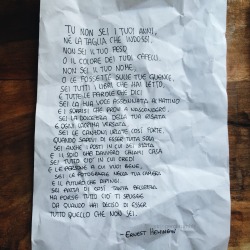 TU NON SEI I TUOI ANNI,
NÈ LA TAGLIA CHE INDOSSI,
NON SEI IL TUO PESO
O IL COLORE DEI TUOI CAPELLI.
NON SEI IL TUO NOME,
O LE FOSSETTE SULLE TUE GUANCE,
SEI TUTTI I LIBRI CHE HAI LETTO,
E TUTTE LE PAROLE CHE DICI
SEI LA TUA VOCE ASSONNATA AL MATTINO
E I SORRISI CHE PROVI A NASCONDERE,
SEI LA DOLCEZZA DELLA TUA RISATA
E OGNI LACRIMA VERSATA,
SEI LE CANZONI URLATE COSÌ FORTE,
QUANDO SAPEVI DI ESSER TUTTA SOLA
SEI ANCHE I POSTI IN CUI SEI STATA
E IL SOLO CHE DAVVERO CHIAMI CASA
SEI TUTTO CIÒ IN CUI CREDI
E LE PERSONE A CUI VUOI BENE,
SEI LE FOTOGRAFIE NELLA TUA CAMERA
E IL FUTURO CHE DIPINGI.
SEI FATTA DI COSÌ TANTA BELLEZZA
MA FORSE TUTTO CIÒ TI SFUGGE
DA QUANDO HAI DECISO DI ESSER
TUTTO QUELLO CHE NON SEI.
- ERNEST HEMINGWAY